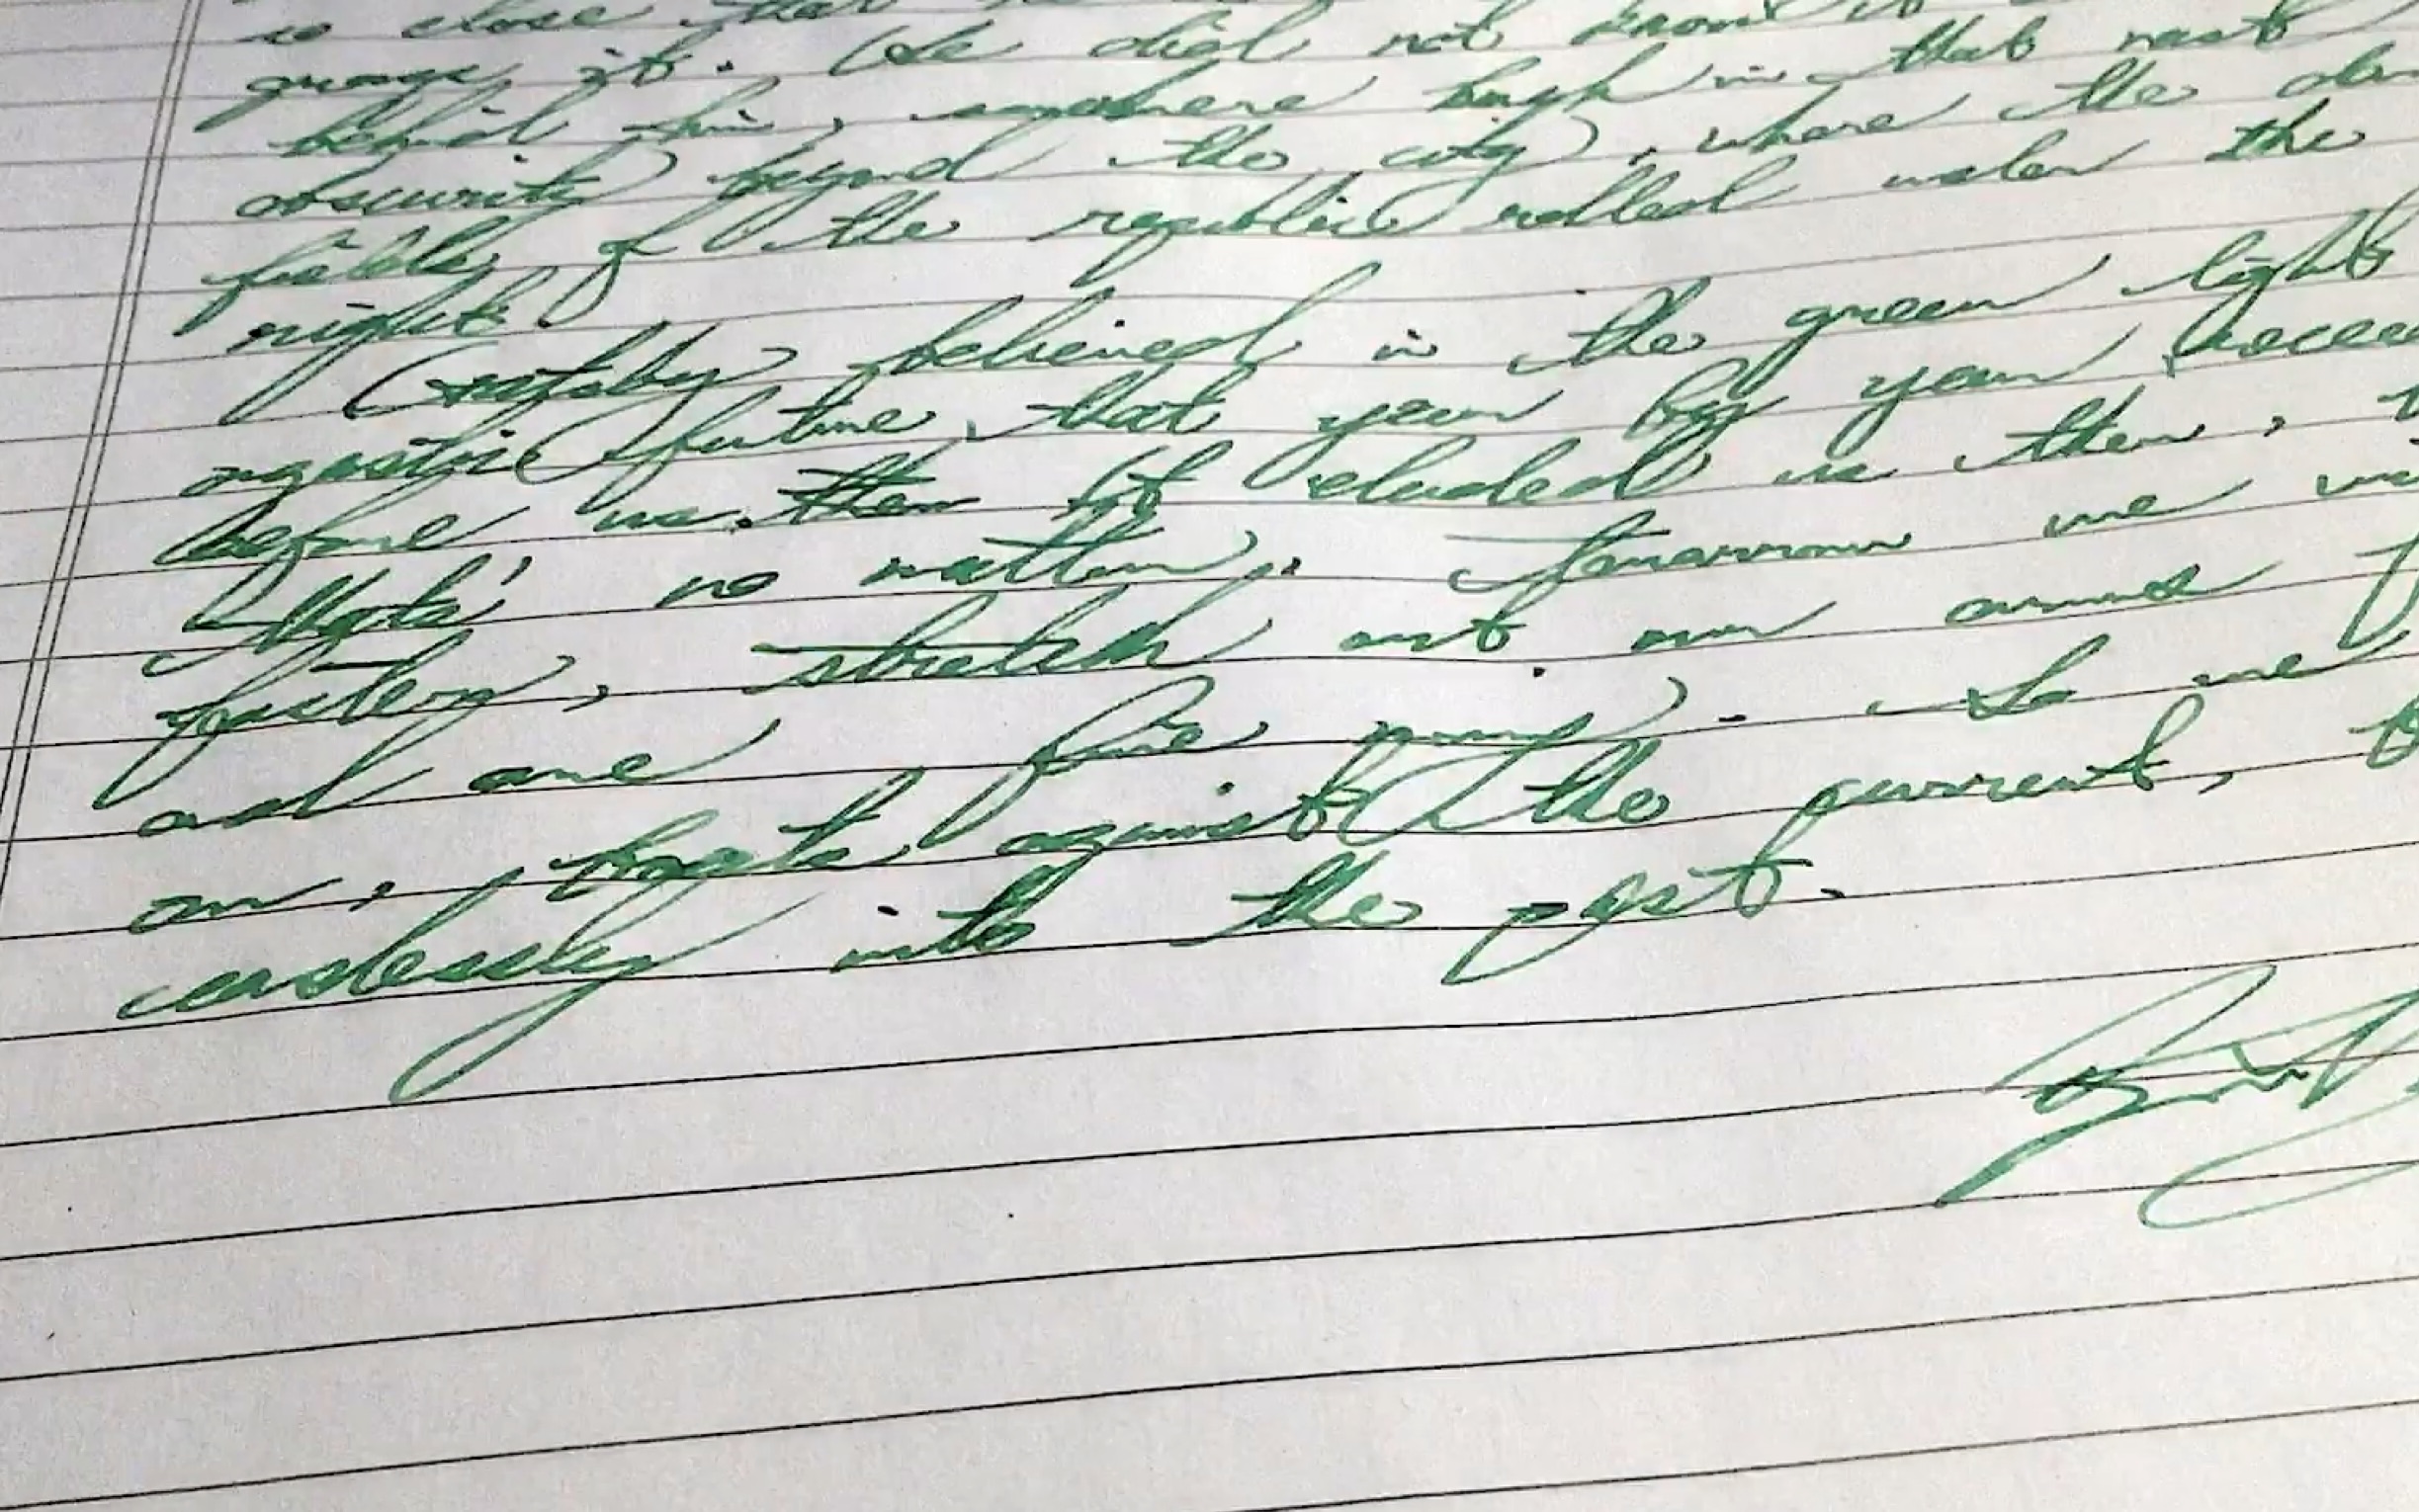 so close that
grasp it. He did not know it
behind him, somewhere high in that vast
obscurity beyond the city, where the dar
fields of the republic rolled under the
night.
Gatsby believed in the green light
orgastic future that year by year recee
before us. then It eluded us then, t
that's no matter. Tomorrow we wi
faster, stretch out our arms f
and one fine morn. So we
on, boats against the current, b
ceaslessly into the past.